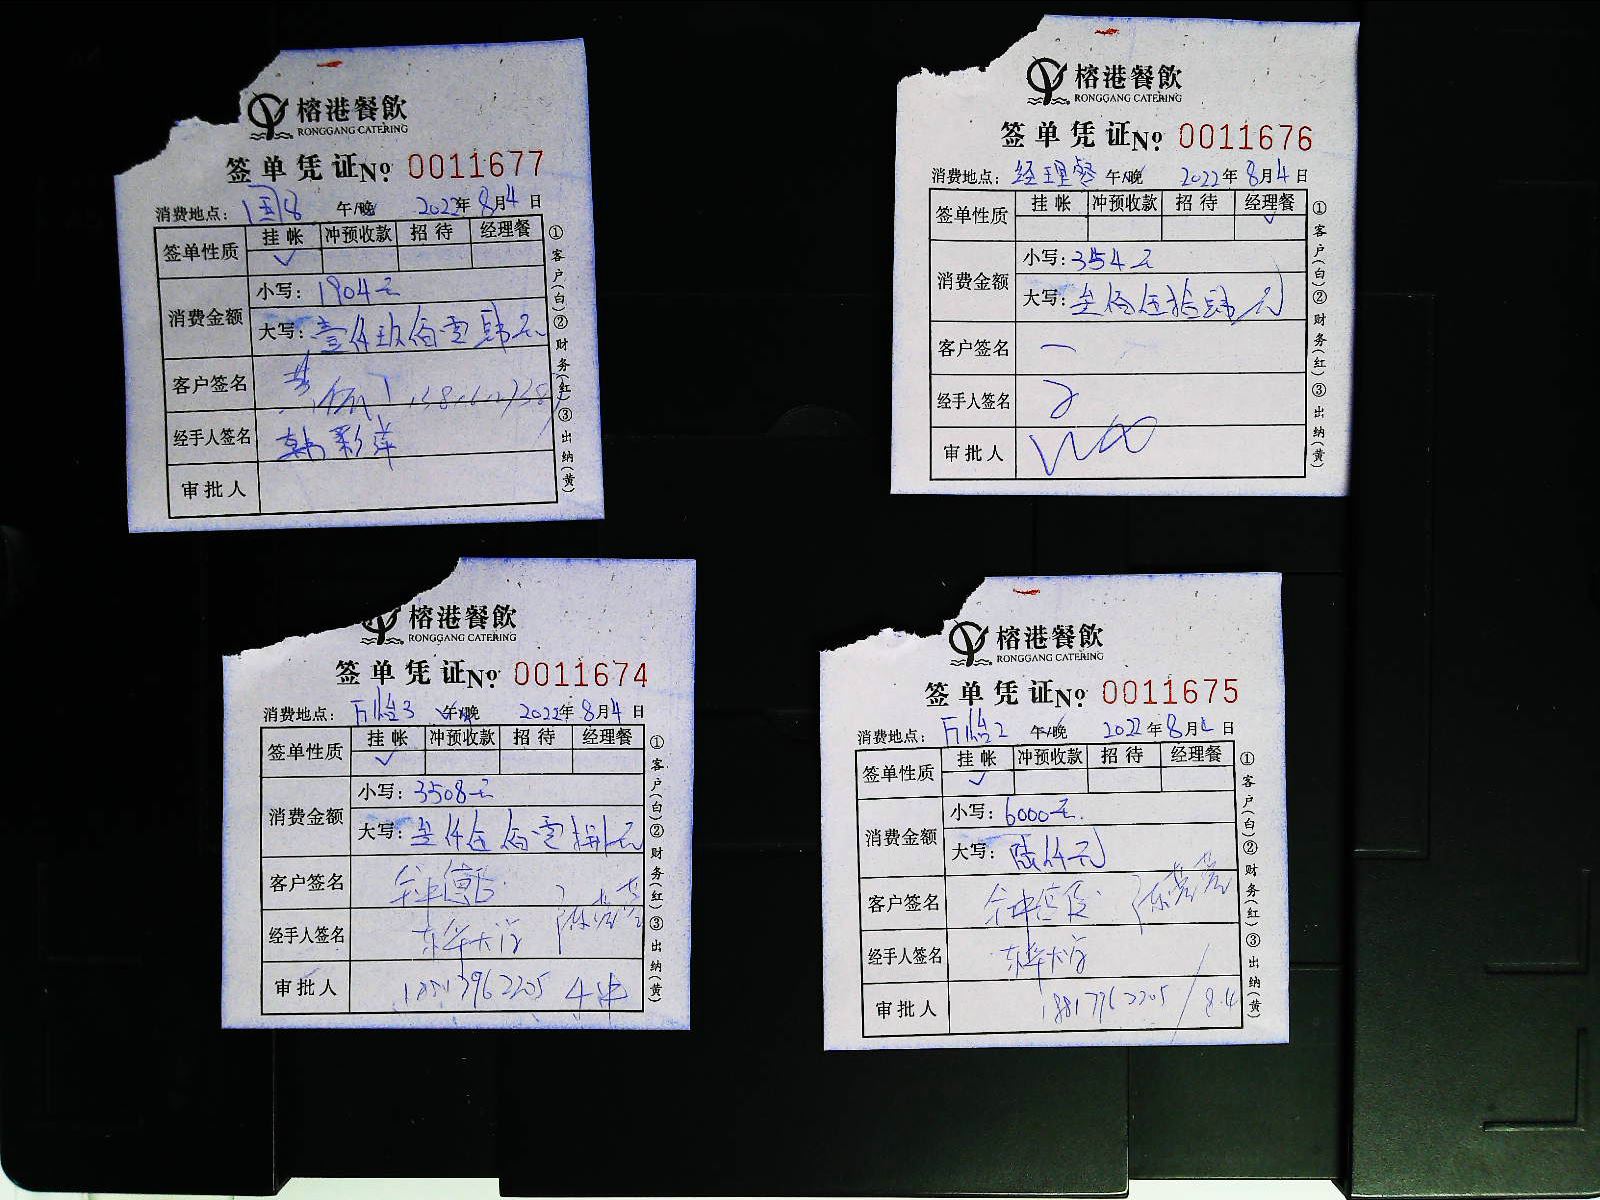 榕港餐飲
RONGGANG CATERING
签单凭证No. 0011677
消费地点: 国8 午/晚 2022年8月4日
签单性质 挂帐 冲预收款 招待 经理餐
✓
消费金额 小写: 1904元
大写: 壹仟玖佰零肆元
客户签名
经手人签名 韩彩萍
审批人
①客户(白)②财务(红)③出纳(黄)
榕港餐飲
RONGGANG CATERING
签单凭证No. 0011676
消费地点: 经理餐 午/晚 2022年8月4日
签单性质 挂帐 冲预收款 招待 经理餐
✓
消费金额 小写: 354元
大写: 叁佰伍拾肆元
客户签名
经手人签名
审批人
①客户(白)②财务(红)③出纳(黄)
榕港餐飲
RONGGANG CATERING
签单凭证No. 0011674
消费地点: 午/晚 2022年8月4日
签单性质 挂帐 冲预收款 招待 经理餐
✓
消费金额 小写: 3508元
大写: 叁仟伍佰零捌元
客户签名
经手人签名 东华大学
审批人
①客户(白)②财务(红)③出纳(黄)
榕港餐飲
RONGGANG CATERING
签单凭证No. 0011675
消费地点: 午/晚 2022年8月4日
签单性质 挂帐 冲预收款 招待 经理餐
✓
消费金额 小写: 6000元.
大写: 陆仟元
客户签名
经手人签名 东华大学
审批人 8.4
①客户(白)②财务(红)③出纳(黄)